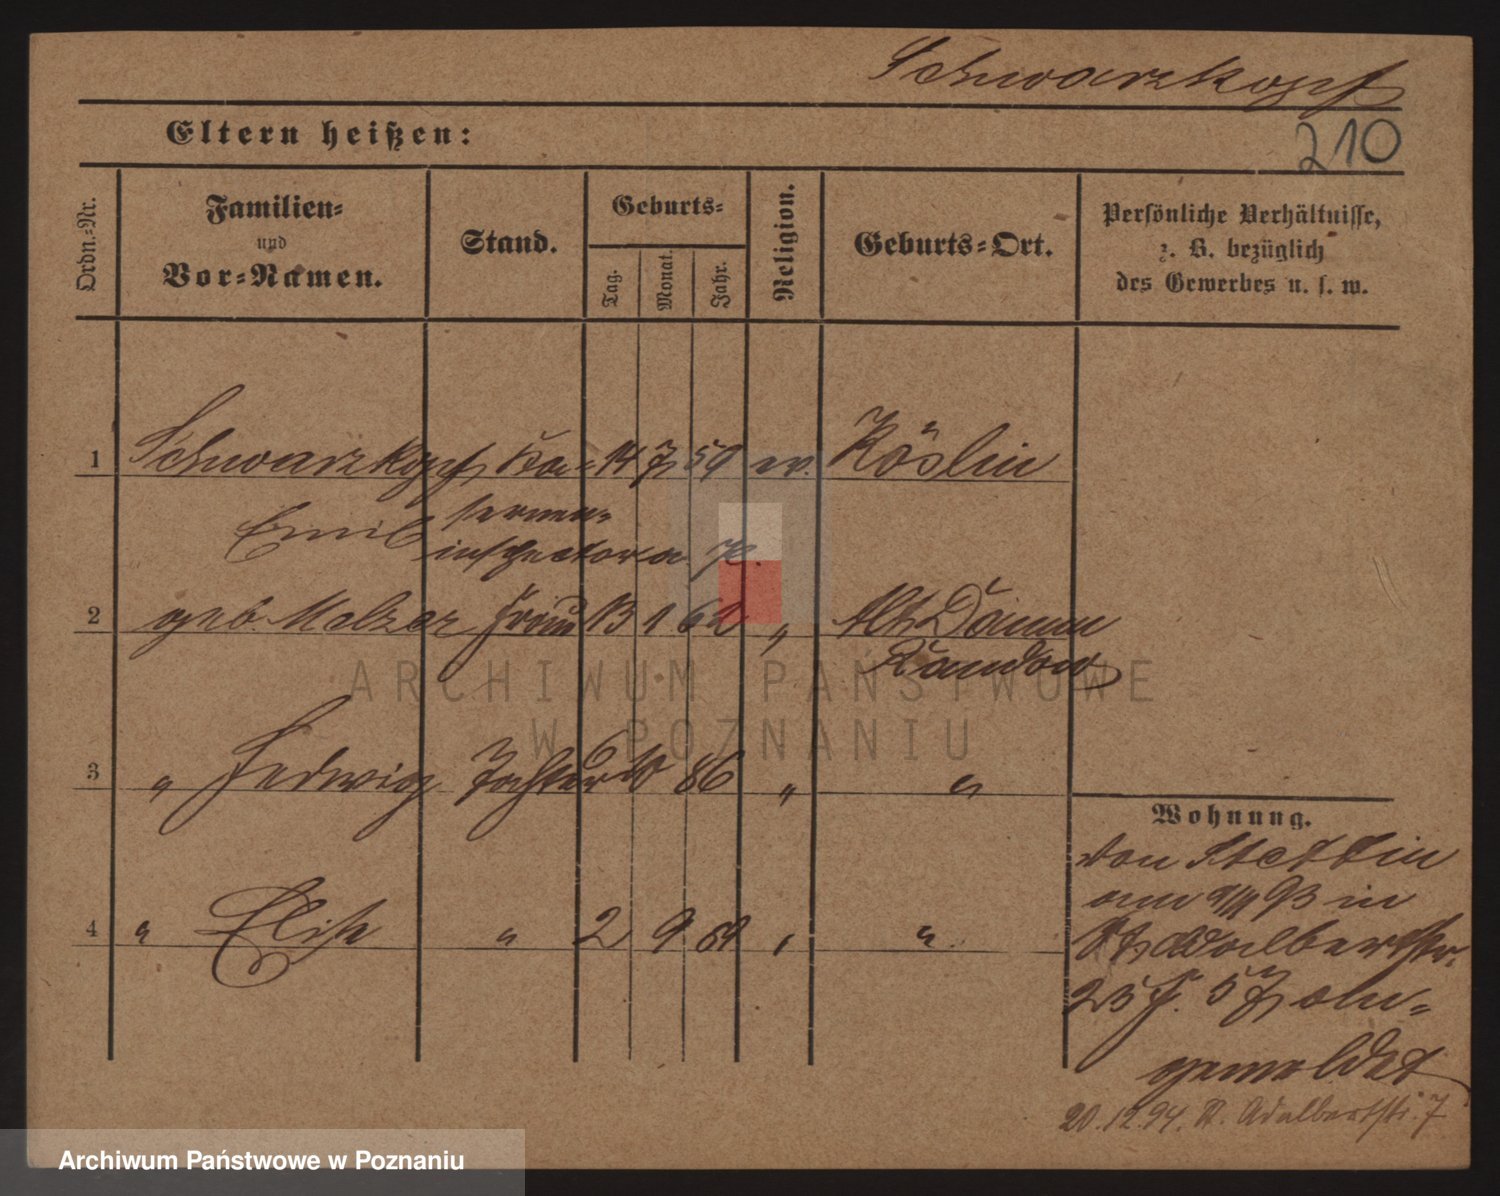 Schwarzkopf
Eltern heißen:
210
Ordn.-Nr.
Familien-
und
Vor-Namen.
Stand.
Geburts-
Tag.
Monat.
Jahr.
Religion.
Geburts-Ort.
Persönliche Verhältnisse,
z. B. bezüglich
des Gewerbes u. s. w.
1 Schwarzkopf Ka- 14 7 59 ev. Köslin
Emil sernen-
inspector a. P.
2 geb. Melzer Frau 13 1 62 " Alt Damm
Randow
3 " Hedwig Tochter 86 " "
4 " Elise " 2 9 "
Wohnung.
von Stettin
am 93 in
St. Adalbertstr.
25 F. 57 an-
gemeldet
20.12.94. St. Adalbertstr. 7
ARCHIWUM PAŃSTWOWE
W POZNANIU
Archiwum Państwowe w Poznaniu